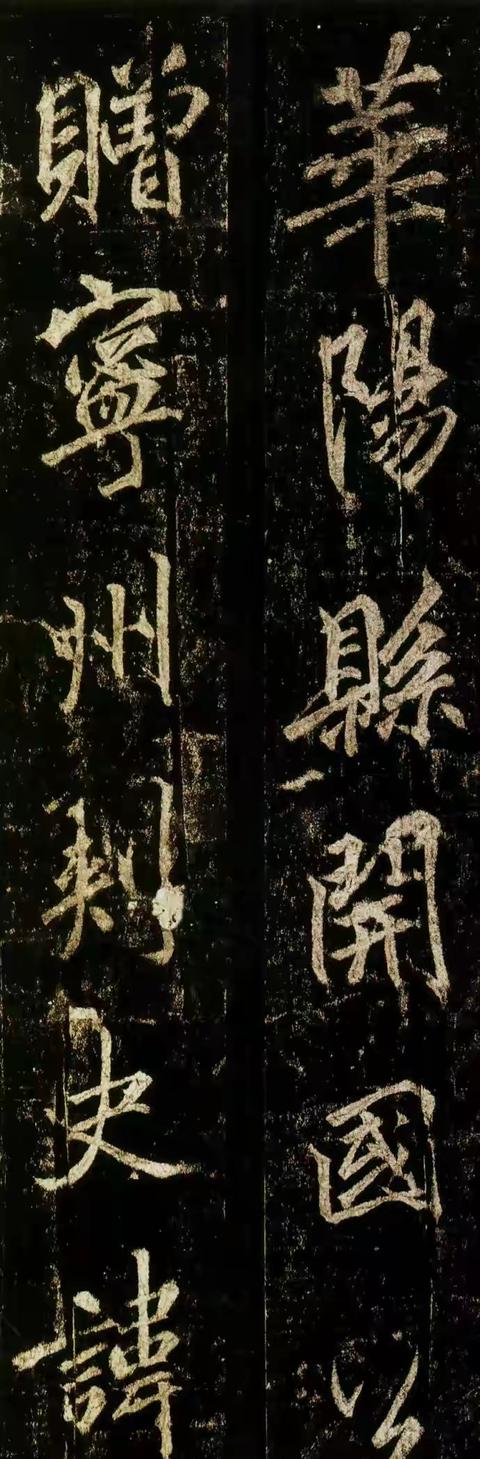 華陽縣開國公
贈寧州刺史諱